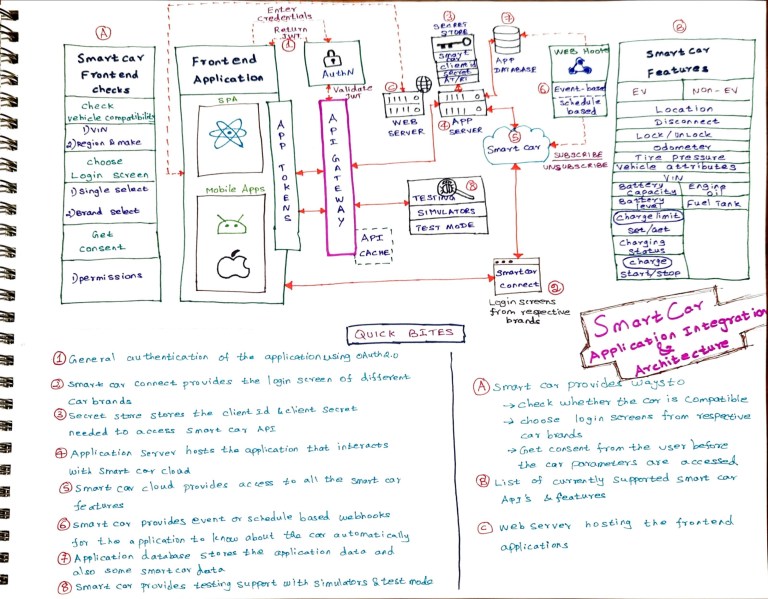 A
Smartcar
Frontend
checks
Check
vehicle compatibility
1) VIN
2) Region & make
Choose
Login screen
1) Single select
2) Brand select
Get
consent
1) permissions
Enter
Credentials
Return
JWT
1
Frontend
Application
SPA
Mobile Apps
APP TOKENS
AuthN
Validate
JWT
API GATEWAY
API
CACHE
C
WEB
SERVER
3
SECRET
STORE
Smart
car
client id
secret
4
APP
SERVER
7
APP
DATABASE
WEB Hooks
6
Event-based
Schedule
based
5
Smart Car
SUBSCRIBE
UNSUBSCRIBE
8
TESTING
SIMULATORS
TEST MODE
Smartcar
connect
2
Login screens
from respective
brands
B
Smart Car
Features
EV
NON-EV
Location
Disconnect
Lock/Unlock
Odometer
Tire Pressure
Vehicle attributes
VIN
Battery
Capacity
Engine
Oil
Battery
level
Fuel Tank
Charge limit
Set/Get
Charging
Status
Charge
Start/Stop
Smart Car
Application Integration
&
Architecture
QUICK BITES
1 General authentication of the application using OAuth2.0
2 Smart car connect provides the login screen of different
car brands
3 Secret store stores the client Id & client Secret
needed to access smart car API
4 Application Server hosts the application that interacts
with smart car cloud
5 Smart car cloud provides access to all the smart car
features
6 Smart car provides event or schedule based webhooks
for the application to know about the car automatically
7 Application database stores the application data and
also some smartcar data
8 Smart car provides testing support with simulators & test mode
A Smart car provides ways to
→ Check whether the car is compatible
→ choose login screens from respective
car brands
→ Get consent from the user before
the car parameters are accessed
B List of currently supported smart car
API's & features
C Web server hosting the frontend
applications